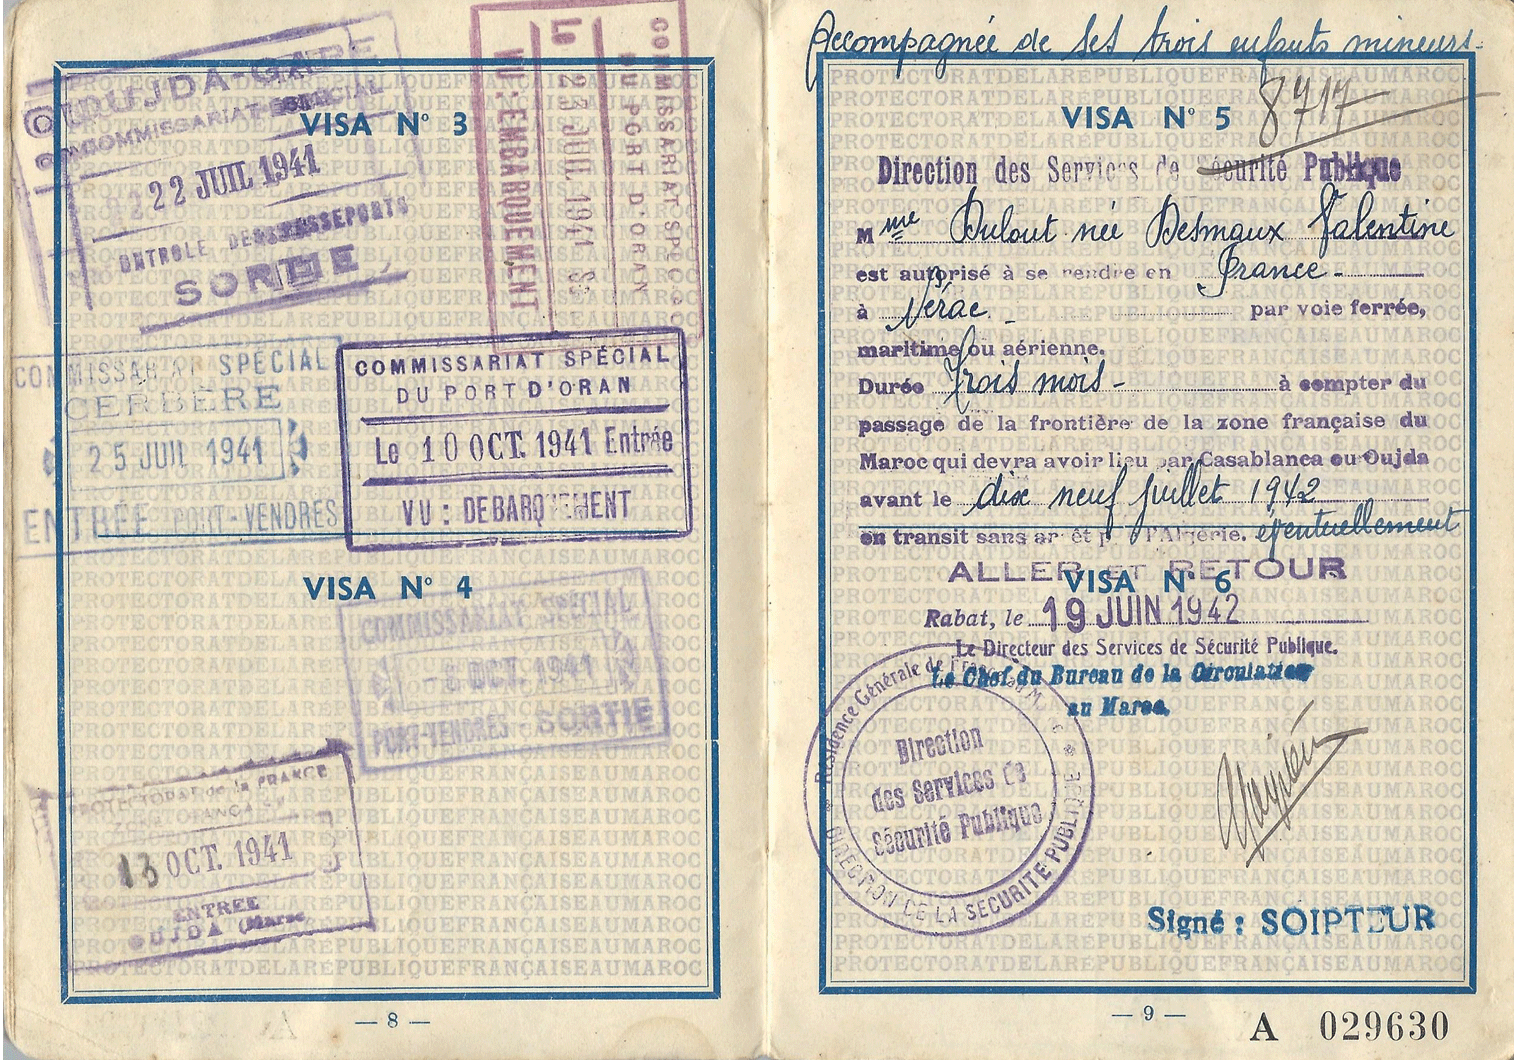 OUJDA-GARE
COMMISSARIAT SPECIAL
22 JUIL 1941
CONTROLE DES PASSEPORTS
SORTIE
VISA Nº 3
COMMISSARIAT SPÉCIAL
DU PORT D'ORAN
Le 23 JUIL 1941
VU : EMBARQUEMENT
COMMISSARIAT SPÉCIAL
CERBÈRE
25 JUIL 1941
ENTRÉE PORT-VENDRES
COMMISSARIAT SPÉCIAL
DU PORT D'ORAN
Le 10 OCT. 1941 Entrée
VU : DEBARQUEMENT
VISA Nº 4
COMMISSARIAT SPÉCIAL
OCT. 1941
PORT-VENDRES - SORTIE
PROTECTORAT de la FRANCE
13 OCT. 1941
ENTREE
OUJDA (Maroc
— 8 —
Accompagnée de ses trois enfants mineurs.
8717
VISA Nº 5
Direction des Services de Sécurité Publique
Mme Dulout née Desmaux Valentine
est autorisé à se rendre en France.
à Nérac. par voie ferrée,
maritime ou aérienne.
Durée Trois mois - à compter du
passage de la frontière de la zone française du
Maroc qui devra avoir lieu par Casablanca ou Oujda
avant le dix neuf juillet 1942
en transit sans arrêt par l'Algérie. éventuellement
ALLER ET RETOUR
VISA Nº 6
Rabat, le 19 JUIN 1942
Le Directeur des Services de Sécurité Publique.
Le Chef du Bureau de la Circulation
au Maroc,
Résidence Générale de France au Maroc
DIRECTION DE LA SÉCURITÉ PUBLIQUE
Direction
des Services de
Sécurité Publique
Signé : SOIPTEUR
— 9 —
A 029630